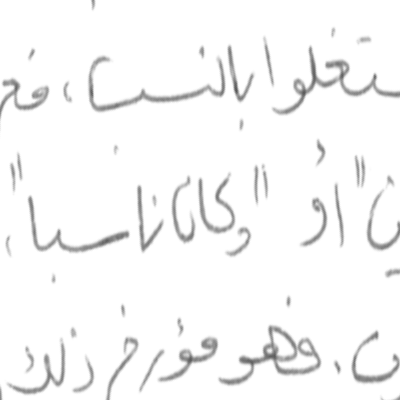 ستغلوا بالنسب، فهم
ين" أو "وكان ناسبا"،
ين. فهو مؤرخ ذلك